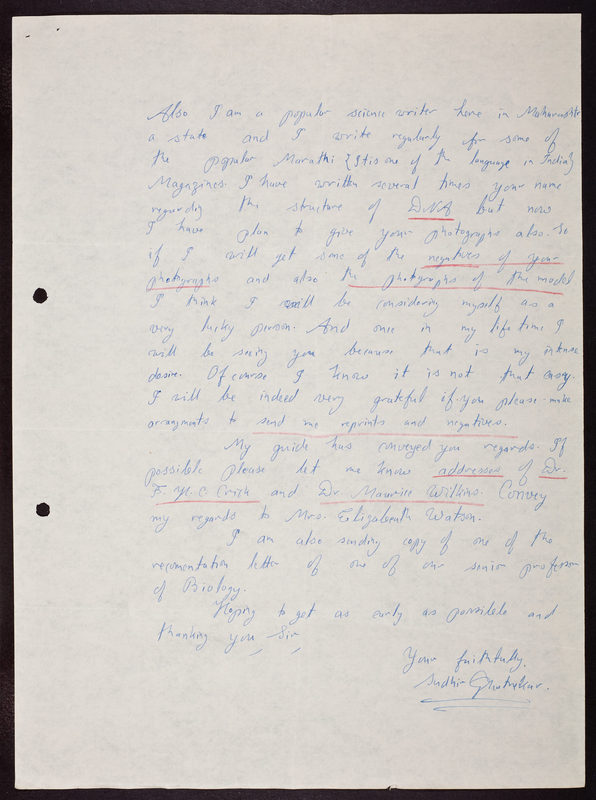 Also I am a popular science writer here in Maharashtr
a state and I write regularly for some of
the popular Marathi {Itis one of the language in India}
Magazines. I have written several times your name
regarding the structure of DNA but now
I have plan to give your photographs also. So
if I will get some of the negatives of your
photographs and also the photgraphs of the model
I think I will be considering myself as a
very lucky person. And once in my life time I
will be seeing you because that is my intense
desire. Of course I know it is not that easy.
I will be indeed very grateful if you please make
arrangments to send me reprints and negatives.
My guide has conveyed you regards. If
possible please let me know addresses of Dr.
F. H. C. Crick and Dr. Maurice Wilkins. Convey
my regards to Mrs. Elizabeuth Watson.
I am also sending copy of one of the
recomentation letter of one of our senior professor
of Biology.
Hoping to get as early as possible and
thanking you Sir
Your faithfully,
Sudhir